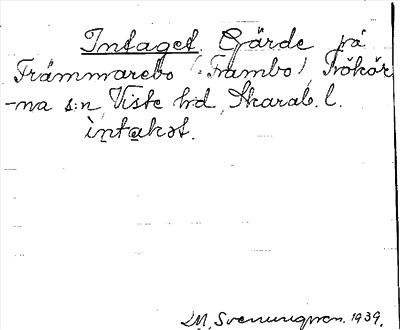 Intaget. Gärde på
Främmarebo (: Frambo), Frökär
-na s:n, Viste hd, Skarab. l.
ìntakət.
D.M. Svenungsson. 1939.